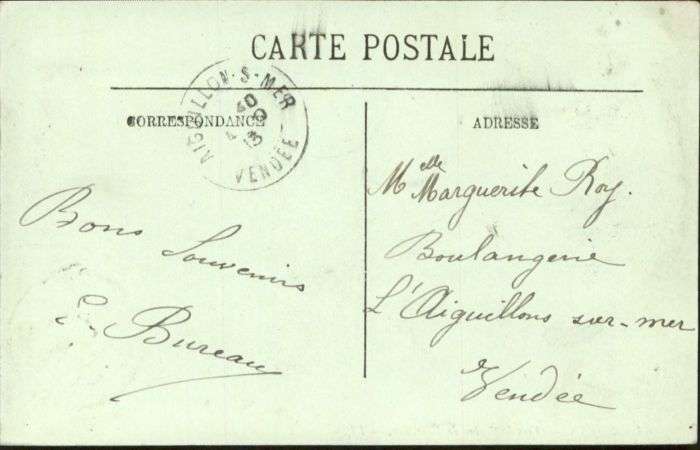 CARTE POSTALE
AIGUILLON-S-MER
VENDÉE
CORRESPONDANCE
ADRESSE
Bons Souvenirs
E. Bureau
Melle Marguerite Roy.
Boulangerie
L'Aiguillons sur-mer
Vendée